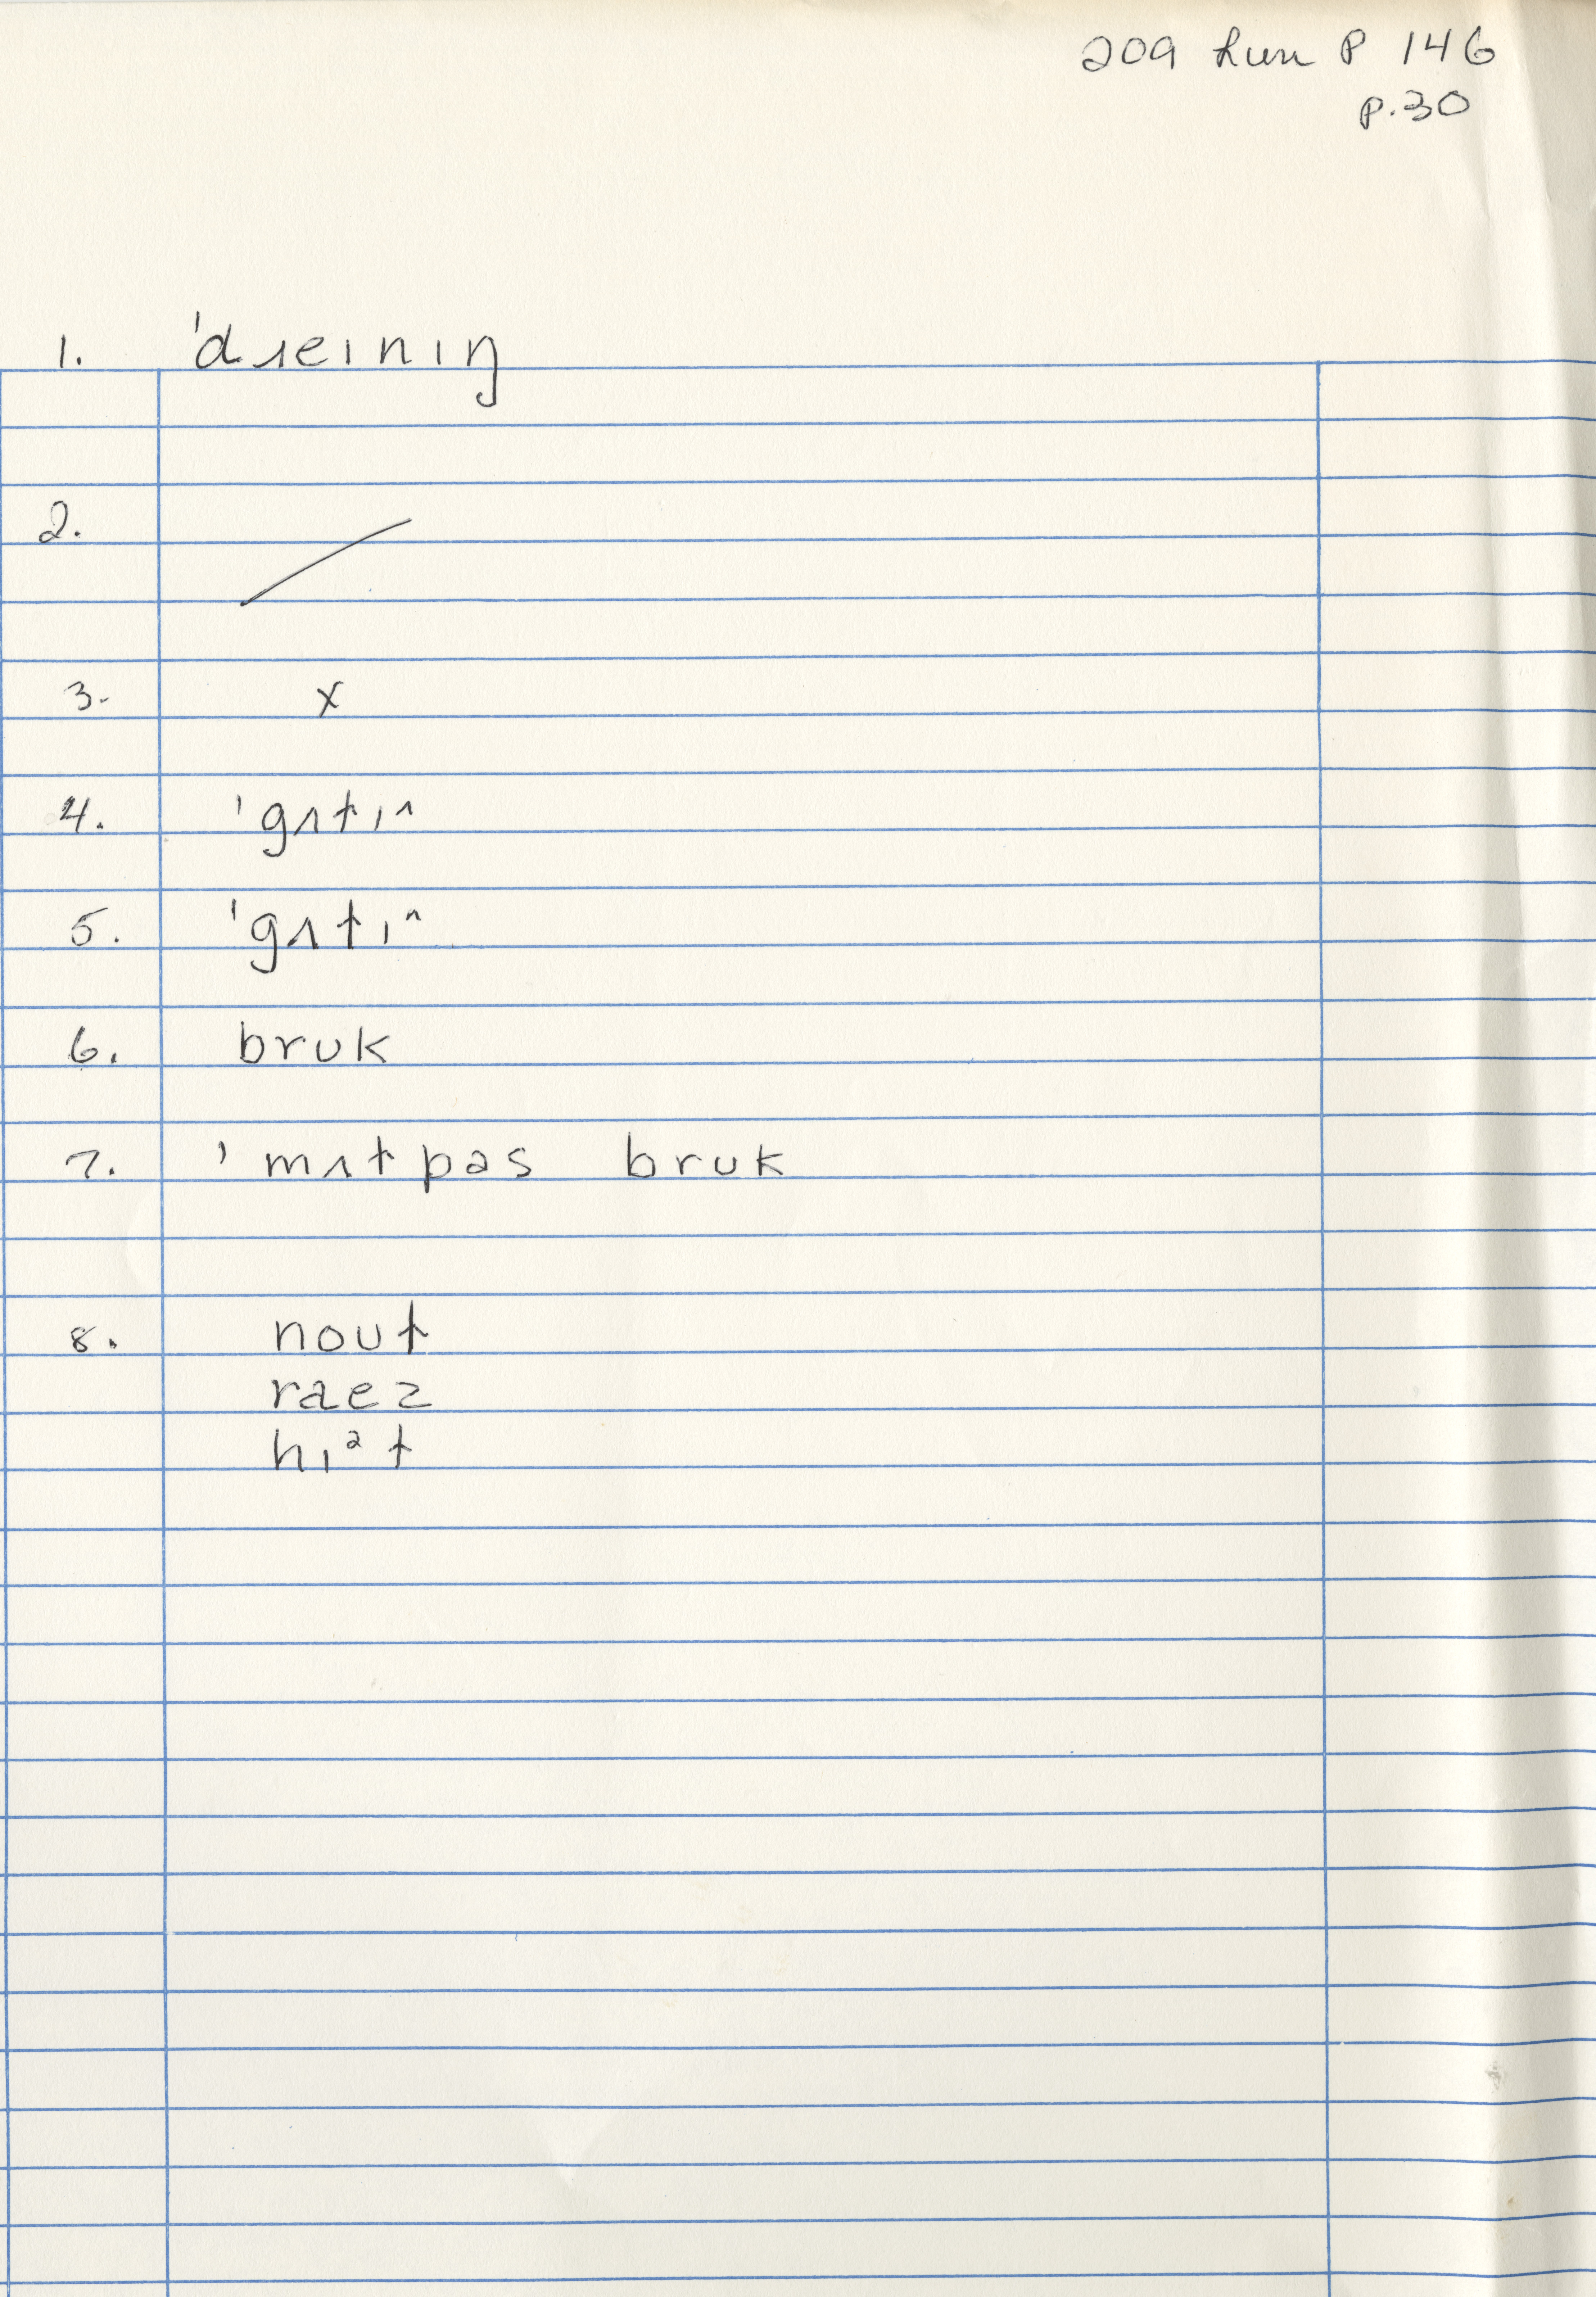 209 Lun P 146
p.30
1. 'dɹeɪnɪŋ
2. /
3. x
4. 'gʌtɪⁿ
5. 'gʌtɪⁿ
6. bruk
7. 'mʌtpas bruk
8. nout
raez
hɪᵊt